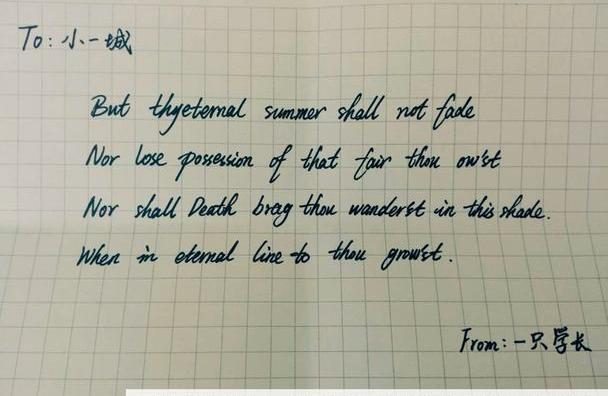 To: 小一城
But thyeternal summer shall not fade
Nor lose possession of that fair thou ow'st
Nor shall Death brag thou wanderst in this shade.
When in eternal line to thou grow'st.
From: 一只学长